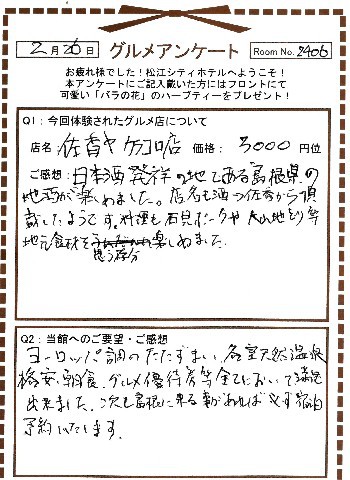 2月26日 グルメアンケート Room No. 2406
お疲れ様でした！松江シティホテルへようこそ！
本アンケートにご記入戴いた方にはフロントにて
可愛い「バラの花」のハーブティーをプレゼント！
Q1：今回体験されたグルメ店について
店名 佐香や 価格：3000円位
ご感想：日本酒発祥の地である島根県の
地酒が楽しめました。店名も酒の佐香から頂
戴したようです。料理も石見ポークや大山地どり等
地元食材を思う存分楽しめました。
Q2：当館へのご要望・ご感想
ヨーロッパ調のたたずまい、各室天然温泉
格安、朝食、グルメ優待券等全てにおいて満足
出来ました。次も島根に来る事があれば必ず宿泊
予約いたします。